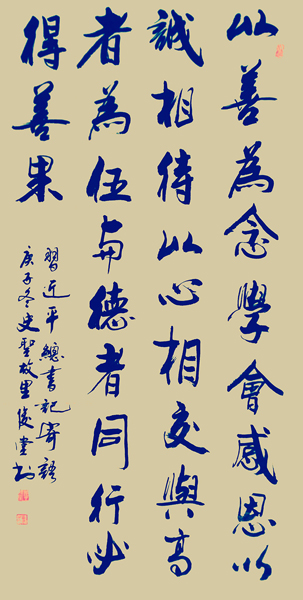 以善為念學會感恩以
誠相待以心相交與高
者為伍与德者同行必
得善果
習近平總書記寄語
庚子冬史聖故里俊堂书